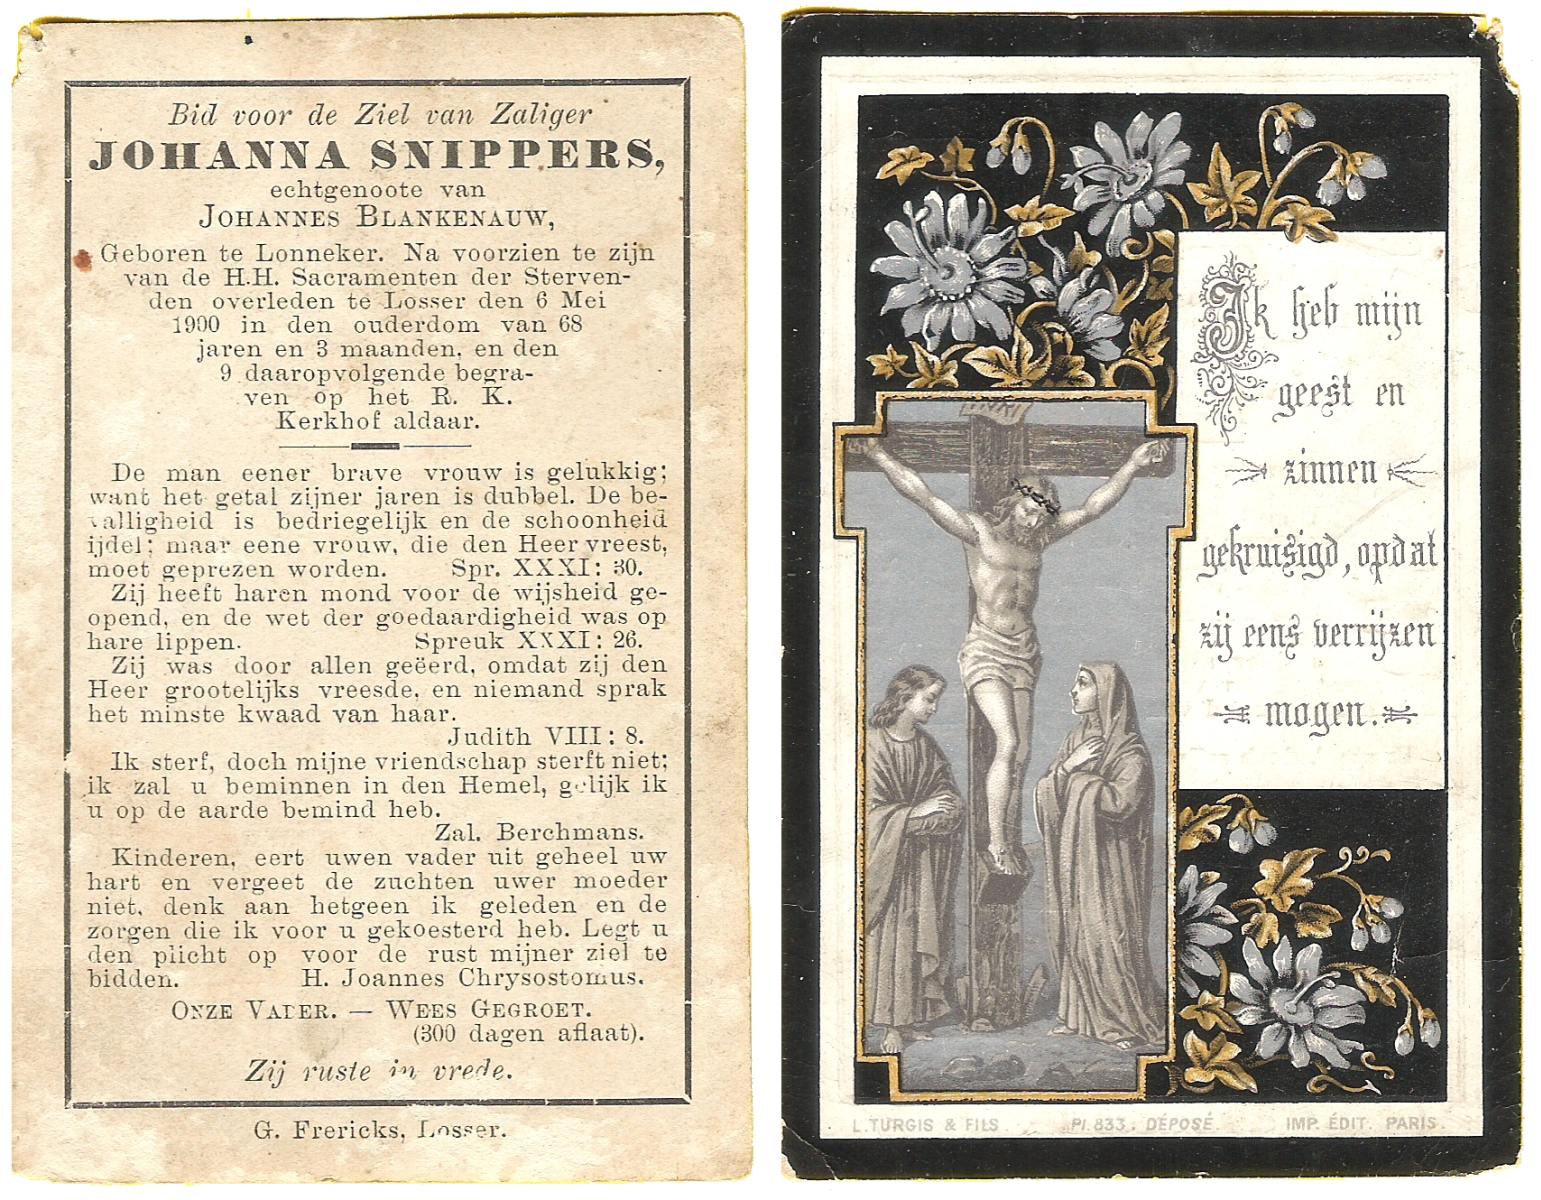 Bid voor de Ziel van Zaliger
JOHANNA SNIPPERS,
echtgenoote van
JOHANNES BLANKENAUW,
Geboren te Lonneker. Na voorzien te zijn
van de H.H. Sacramenten der Sterven-
den overleden te Losser den 6 Mei
1900 in den ouderdom van 68
jaren en 3 maanden, en den
9 daaropvolgende begra-
ven op het R. K.
Kerkhof aldaar.
De man eener brave vrouw is gelukkig;
want het getal zijner jaren is dubbel. De be-
valligheid is bedriegelijk en de schoonheid
ijdel; maar eene vrouw, die den Heer vreest,
moet geprezen worden. Spr. XXXI: 30.
Zij heeft haren mond voor de wijsheid ge-
opend, en de wet der goedaardigheid was op
hare lippen. Spreuk XXXI: 26.
Zij was door allen geëerd, omdat zij den
Heer grootelijks vreesde, en niemand sprak
het minste kwaad van haar.
Judith VIII: 8.
Ik sterf, doch mijne vriendschap sterft niet;
ik zal u beminnen in den Hemel, gelijk ik
u op de aarde bemind heb.
Zal. Berchmans.
Kinderen, eert uwen vader uit geheel uw
hart en vergeet de zuchten uwer moeder
niet, denk aan hetgeen ik geleden en de
zorgen die ik voor u gekoesterd heb. Legt u
den plicht op voor de rust mijner ziel te
bidden. H. Joannes Chrysostomus.
ONZE VADER. — WEES GEGROET.
(300 dagen aflaat).
Zij ruste in vrede.
G. Frericks, Losser.
INRI
Ik heb mijn
geest en
zinnen
gekruisigd, opdat
zij eens verrijzen
mogen.
L. TURGIS & FILS Pl. 833. DÉPOSÉ IMP. ÉDIT. PARIS.